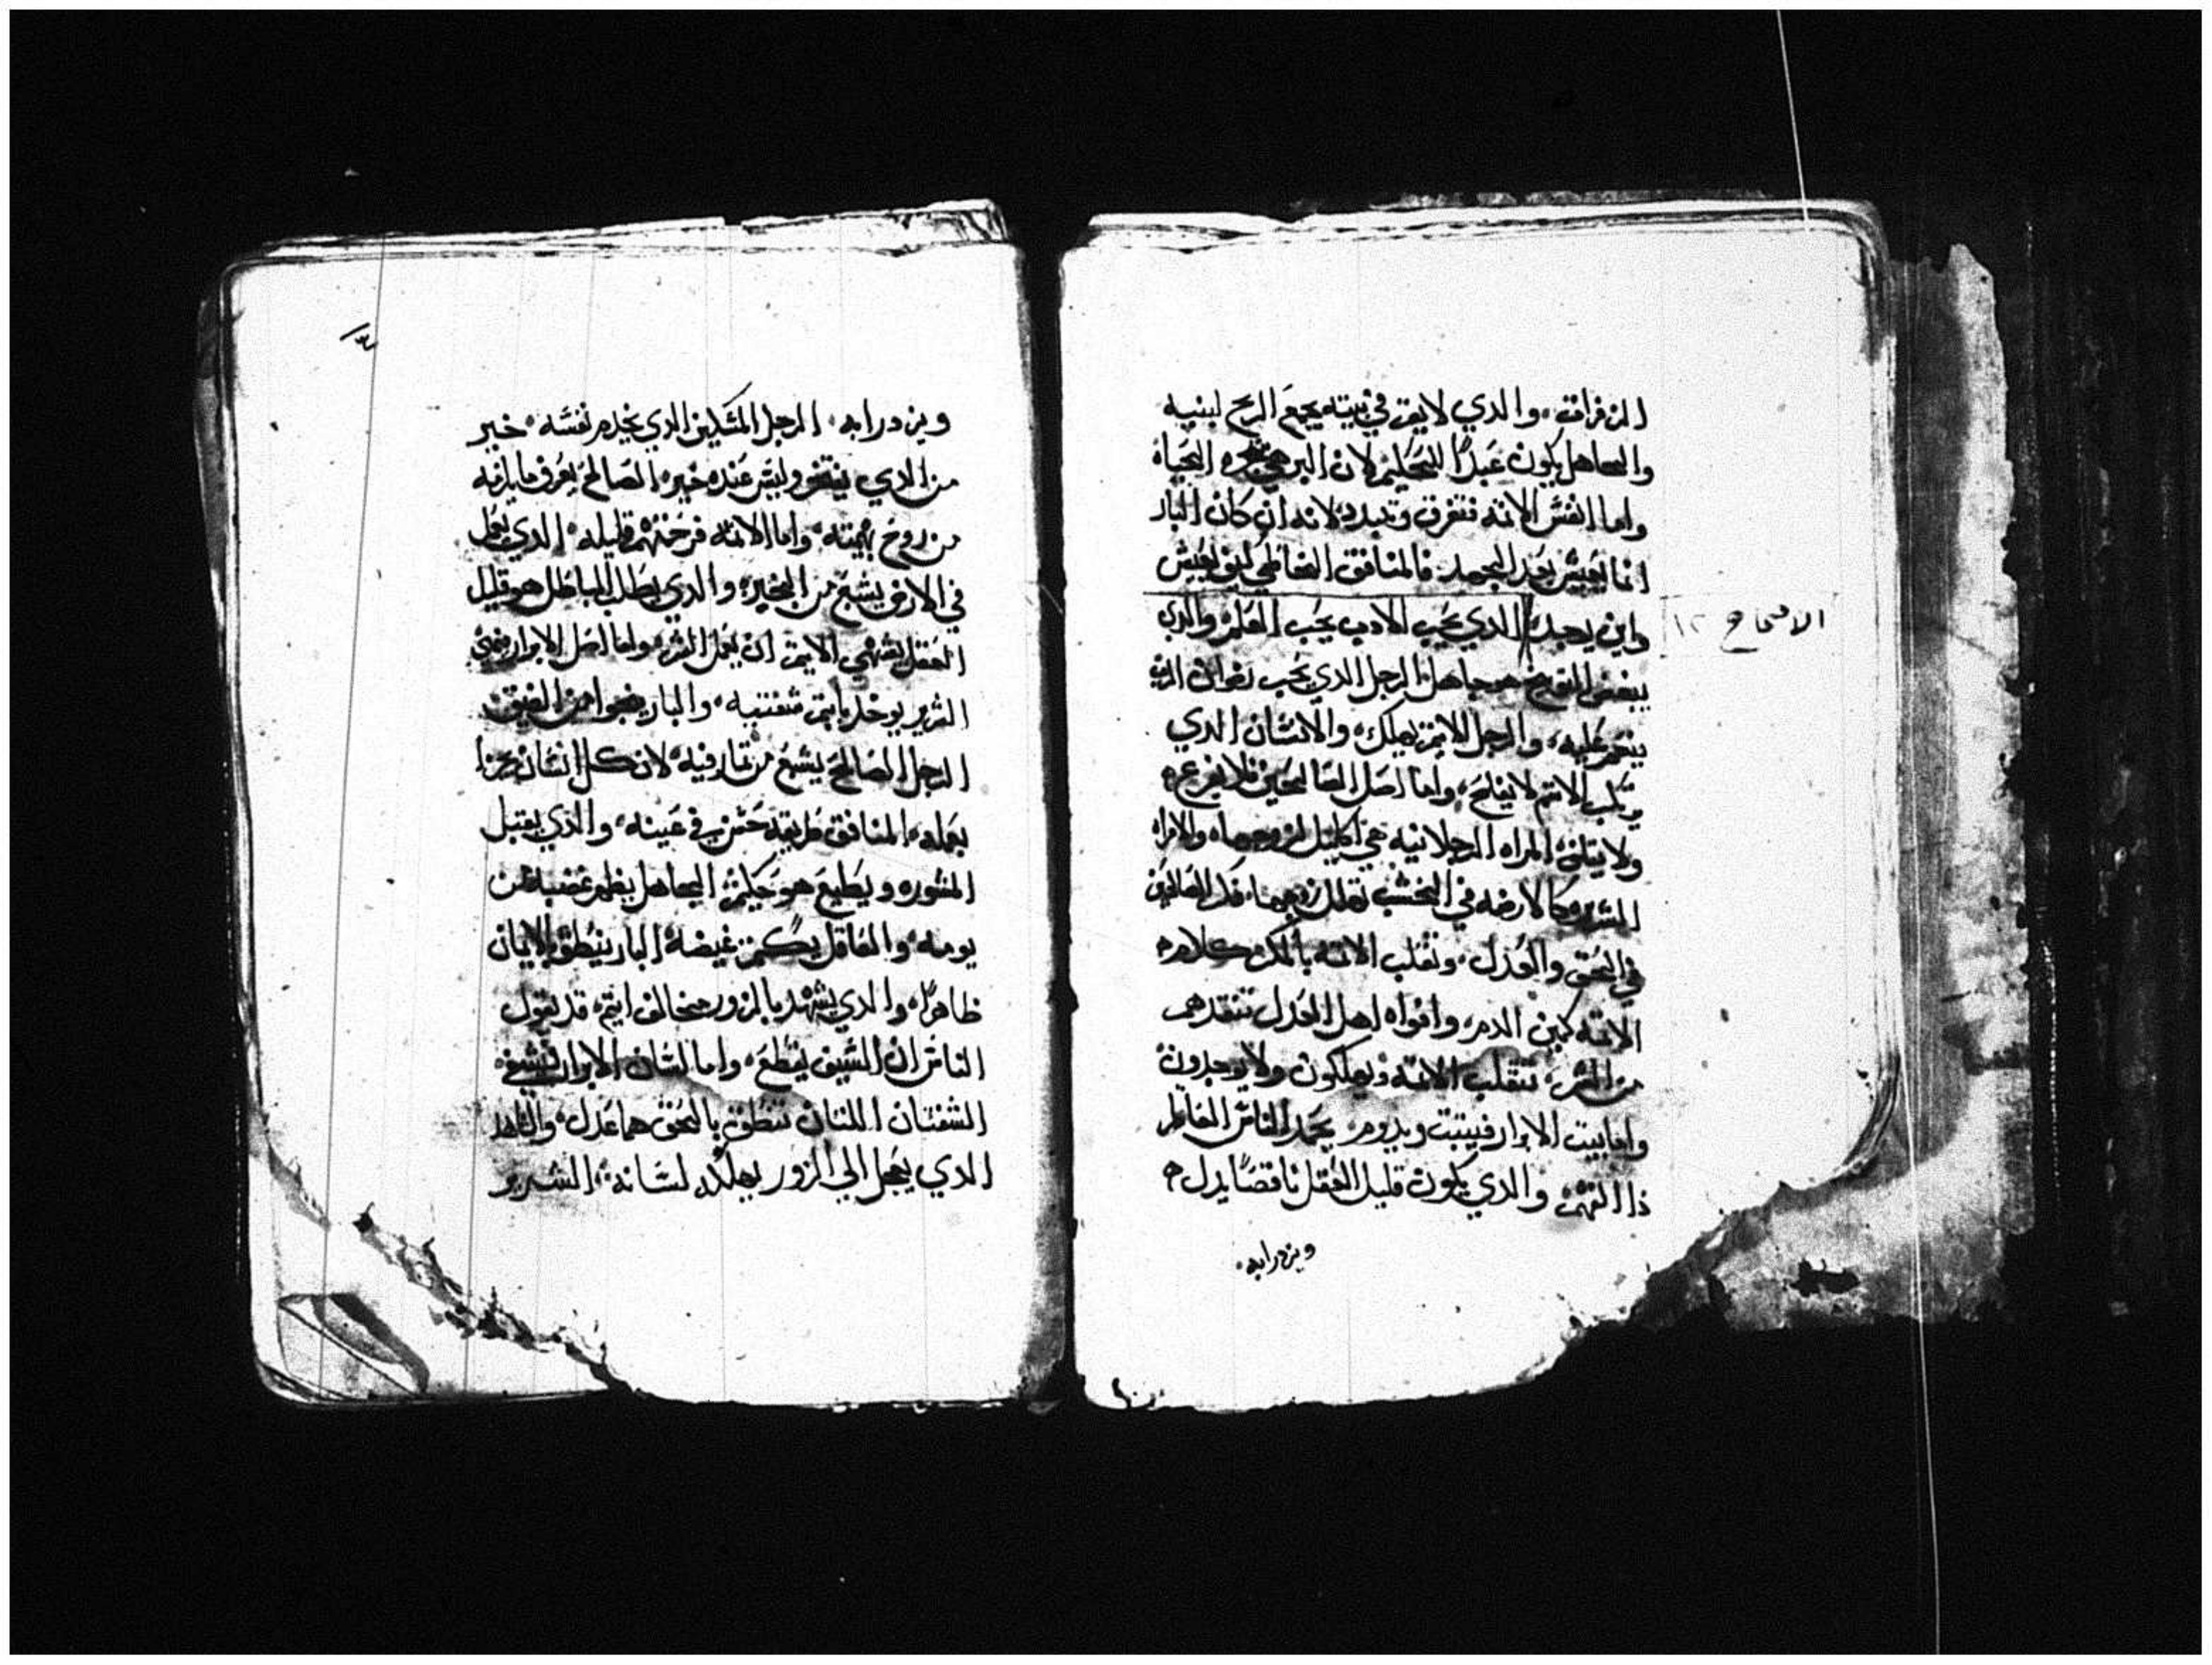 الزفرات، والدي لايقن في بيته يجمع الريح لبنيه
والجاهل يكون عبدًا للحكيم لان البر هي شجرة الحياه
واما انفس الاتمه فتفرق وتبدد لانه ان كان البار
انما يعيش بعد الجهد فالمنافق الخاطي اين يعيش
واين يوجد، الدي يحب الادب يحب العلم، والدي
يبغض التوبيخ هو جاهل، الرجل الدي يحب رضوان الرب
ينعم عليه، والرجل الاتيم يهلك، والانسان الدي
يرتكب الاتم لا يفلح، واما اصل الصالحين فلا يزعزع
ولا يقلق، المراه الرجلانيه هي اكليل لزوجها، والامراه
الشريره كالارضه في الخشب تهلك زوجها، فكر الصالحين
في الحق والعدل، وتقلب الاتمه بالمكر، كلام
الاتمه كمين الدم، وافواه اهل العدل تنقدهم
من الشر، تنقلب الاتمه ويهلكون ولا يوجدون
واما بيت الابرار فيتبت ويدوم، يحمد الناس العاقل
دا الفهم، والدي يكون قليل العقل ناقصًا يدل
ويزدرا به،
الاصحاح ١٢
٣
ويزدرا به، الرجل المسكين الدي يخدم نفسه، خير
من الدي يفتخر وليس عنده خبز، الصالح يعرف ما يلزمه
من روح بهيمته، واما الاتمه فرحمتهم قليله، الدي يعمل
في الارض يشبع من الخبز، والدي يطلب الباطل هو قليل
العقل، يشتهي الاتيم ان يعمل الشر، واما اصل الابرار فينمي
الشرير يوخد باتم شفتيه، والبار ينجوا من الضيق
الرجل الصالح يشبع من تمار فيه، لان كل انسان يجزا
بعمله، المنافق طريقه حسن في عينه، والدي يقبل
المشوره ويطيع هو حكيم، الجاهل يظهر غضبه من
يومه، والعاقل يكتم غيضه، البار ينطق بالايمان
ظاهرًا، والدي يشهد بالزور مخالف اتيم، قد يقول
الناس ان السيف يقطع، واما لسان الابرار فيشفي
الشفتان اللتان تنطق بالحق هما عدل، والشاهد
الدي يعجل الي الزور يهلكه لسانه، الشرير